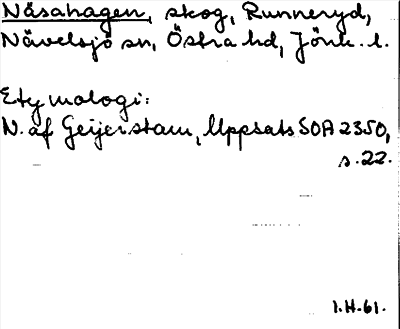 Näsahagen, skog, Runneryd,
Nävelsjö sn, Östra hd, Jönk. l.
Etymologi:
N. af Geijerstam, Uppsats SOA 2350,
s. 22.
1.H.61.